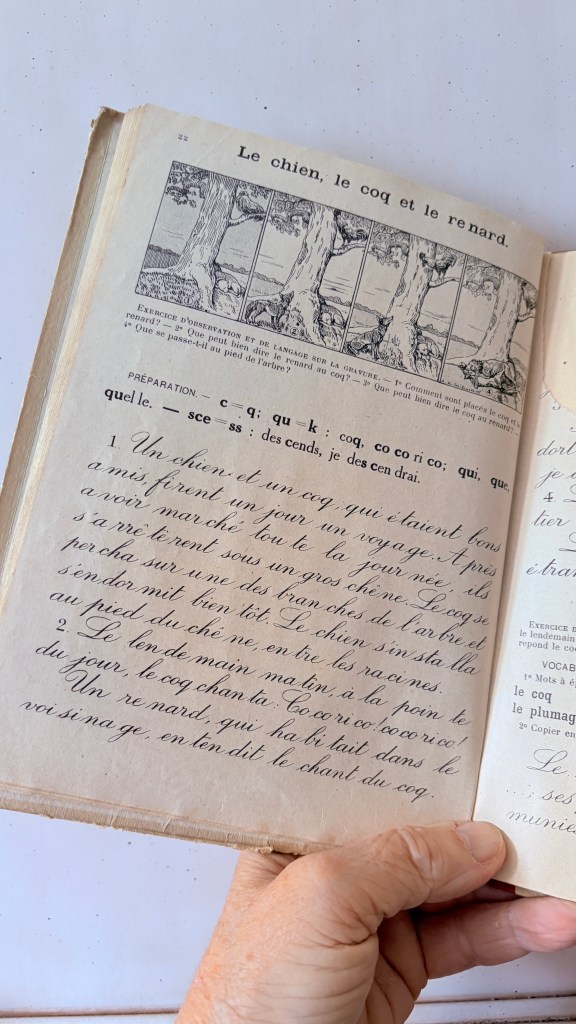 22
Le chien, le coq et le renard.
EXERCICE D'OBSERVATION ET DE LANGAGE SUR LA GRAVURE. — 1° Comment sont placés le coq et le
renard? — 2° Que peut bien dire le renard au coq? — 3° Que peut bien dire le coq au renard?
4° Que se passe-t-il au pied de l'arbre?
PRÉPARATION. — c=q; qu=k : coq, co co ri co; qui, que,
quel le. — sce=ss : des cends, je des cen drai.
1. Un chien et un coq, qui é taient bons
a mis, firent un jour un voyage. A près
a voir mar ché tou te la jour née, ils
s'a rrê tè rent sous un gros chêne. Le coq se
per cha sur une des bran ches de l'arbre et
s'en dor mit bien tôt. Le chien s'in sta lla
au pied du chê ne, en tre les ra cines.
2. Le len de main ma tin, à la poin te
du jour, le coq chan ta: Co co ri co! co co ri co!
Un re nard, qui ha bi tait dans le
voi si na ge, en ten dit le chant du coq.
dort
je
4.
tier
é tran
EXERCICE
le lendemain
repond le co
VOCAB
1° Mots à é
le coq
le plumag
2° Copier en
Le...
...; ses
munie